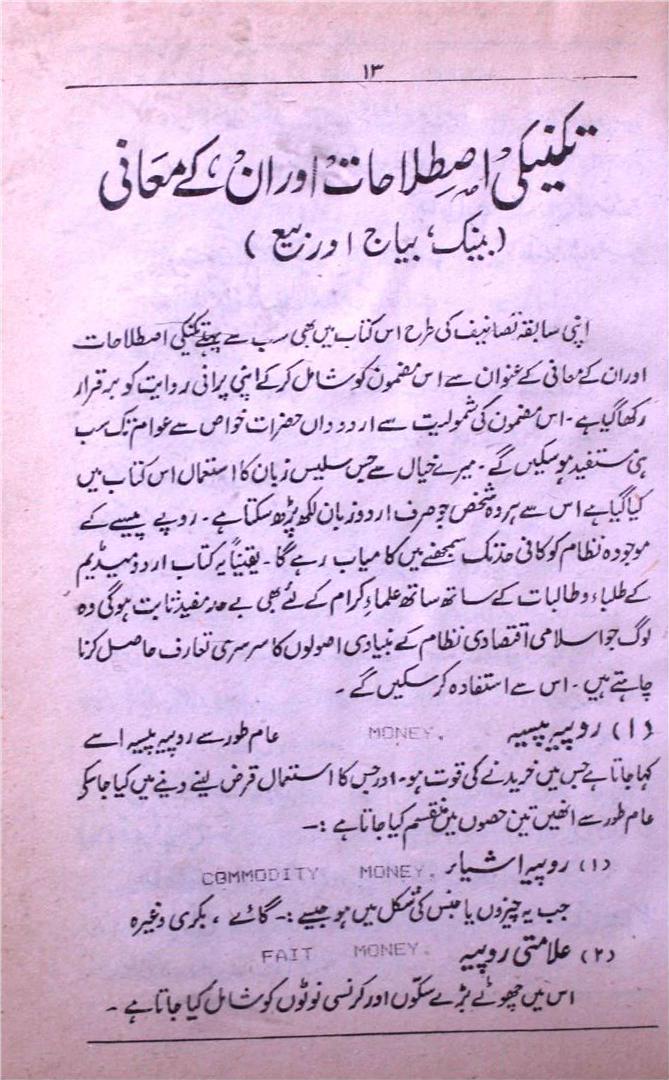 ۱۳
تکنیکی اصطلاحات اور ان کے معانی
(بینک، بیاج اور زبیع)
اپنی سابقہ تصانیف کی طرح اس کتاب میں بھی سب سے پہلے تکنیکی اصطلاحات
اور ان کے معانی کے عنوان سے اس مضمون کو شامل کر کے اپنی پرانی روایت کو برقرار
رکھا گیا ہے۔ اس مضمون کی شمولیت سے اردو داں حضرات خواص سے عوام تک سب
ہی مستفید ہو سکیں گے۔ میرے خیال سے جس سلیس زبان کا استعمال اس کتاب میں
کیا گیا ہے اس سے ہر وہ شخص جو صرف اردو زبان لکھ پڑھ سکتا ہے۔ روپے پیسے کے
موجودہ نظام کو کافی حد تک سمجھنے میں کامیاب رہے گا۔ یقیناً یہ کتاب اردو میڈیم
کے طلباء و طالبات کے ساتھ ساتھ علماء کرام کے لئے بھی بے حد مفید ثابت ہو گی وہ
لوگ جو اسلامی اقتصادی نظام کے بنیادی اصولوں کا سرسری تعارف حاصل کرنا
چاہتے ہیں۔ اس سے استفادہ کر سکیں گے۔
(۱) روپیہ پیسہ MONEY. عام طور سے روپیہ پیسہ اسے
کہا جاتا ہے جس میں خریدنے کی قوت ہو۔ اور جس کا استعمال قرض لینے دینے میں کیا جا سکے
عام طور سے انھیں تین حصوں میں منقسم کیا جاتا ہے :-
(۱) روپیہ اشیاء COMMODITY MONEY.
جب یہ چیزوں یا جنس کی شکل میں ہو جیسے :- گائے، بکری وغیرہ
(۲) علامتی روپیہ FAIT MONEY.
اس میں چھوٹے بڑے سکّوں اور کرنسی نوٹوں کو شامل کیا جاتا ہے۔